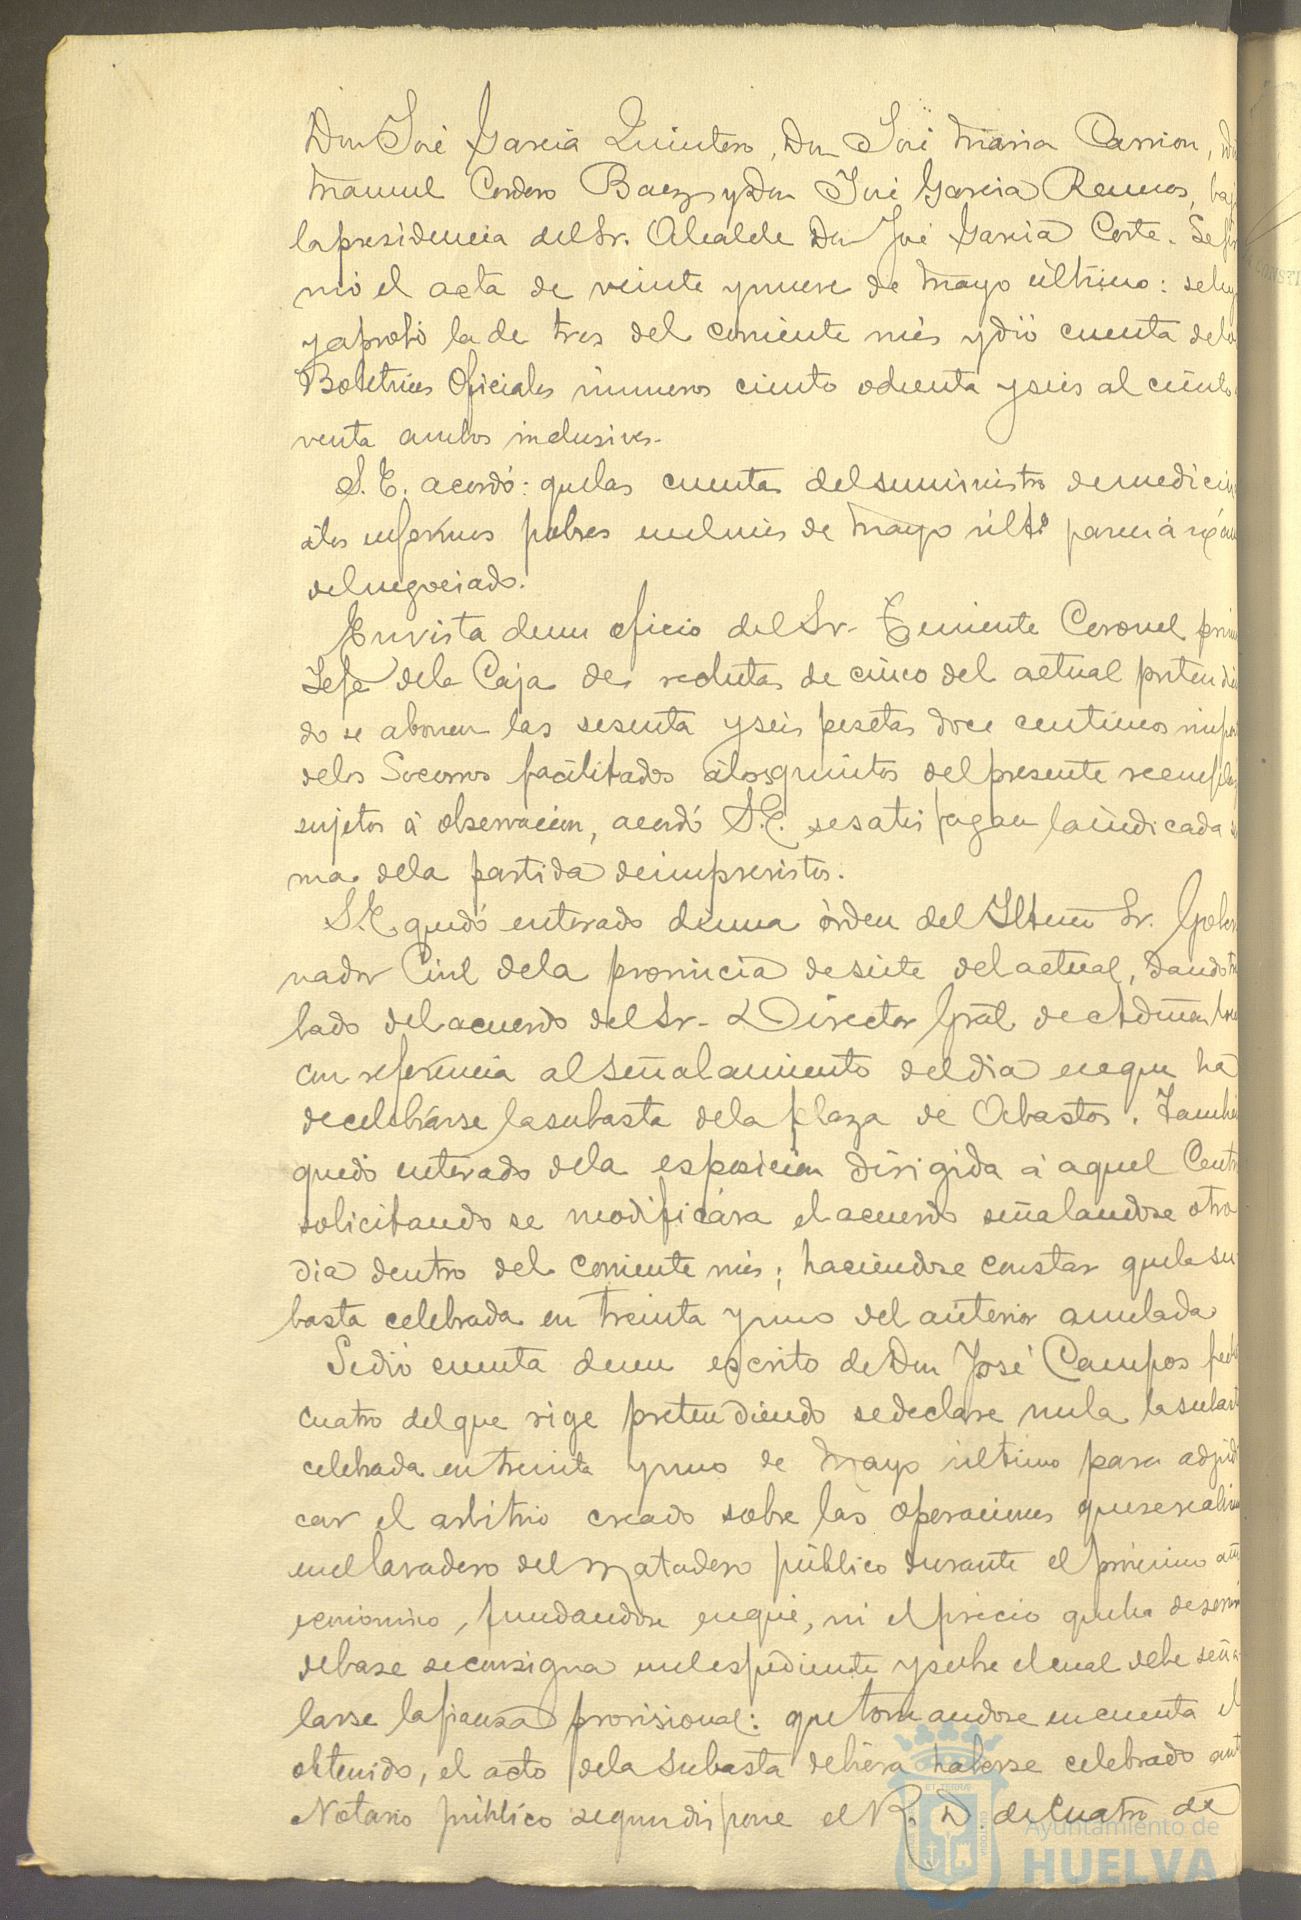 Don José Garcia Quintero, Don José Maria Carrion,
Manuel Cordero Baez y Don José Garcia Ramos, baj
la presidencia del Sr. Alcalde Don José Garcia Corte. Se fir
mó el acta de veinte y nueve de Mayo último: se ley
y aprobó la de tres del corriente més y dió cuenta de lo
Boletines Oficiales números ciento ochenta y seis al ciento
venta ambos inclusives.
S. E. acordó: que las cuentas del suministro de medicin
á los enfermos pobres en el mes de Mayo últº pasen á exám
del negociado.
En vista de un oficio del Sr. Teniente Coronel prim
Jefe de la Caja de reclutas de cinco del actual pretendien
do se abonen las sesenta y seis pesetas doce centimos impor
de los Socorros facilitados á los quintos del presente reemplaz
sujetos á observacion, acordó S.E. se satisfagan la indicada s
ma de la partida de imprevistos.
S.E. quedó enterado de una órden del Iltmo Sr. Gober
nador Civil de la provincia de siete del actual, dando tras
lado del acuerdo del Sr. Director Gral. de Admon loc
con referencia al señalamiento del dia en que ha
de celebrarse la subasta de la plaza de Abastos. Tambie
quedó enterado de la esposicion dirigida á aquel Centr
solicitando se modificára el acuerdo señalandose otro
dia dentro del corriente més; haciendose constar que la su
basta celebrada en treinta y uno del anterior anulada
Se dió cuenta de un escrito de Don José Campos fech
cuatro del que rige pretendiendo se declare nula la subast
celebrada en treinta y uno de Mayo último para adjudi
car el arbitrio creado sobre las operaciones que se realiz
en el lavadero del Matadero público durante el próximo añ
económico, fundandose en que, ni el precio que ha de servir
de base se consigna en el espediente y sobre el cual debe seña
larse la fianza provisional: que tomandose en cuenta el
obtenido, el acto de la subasta debiera haberse celebrado ant
Notario público segun dispone el R. D. de cuatro de
Ayuntamiento de
HUELVA